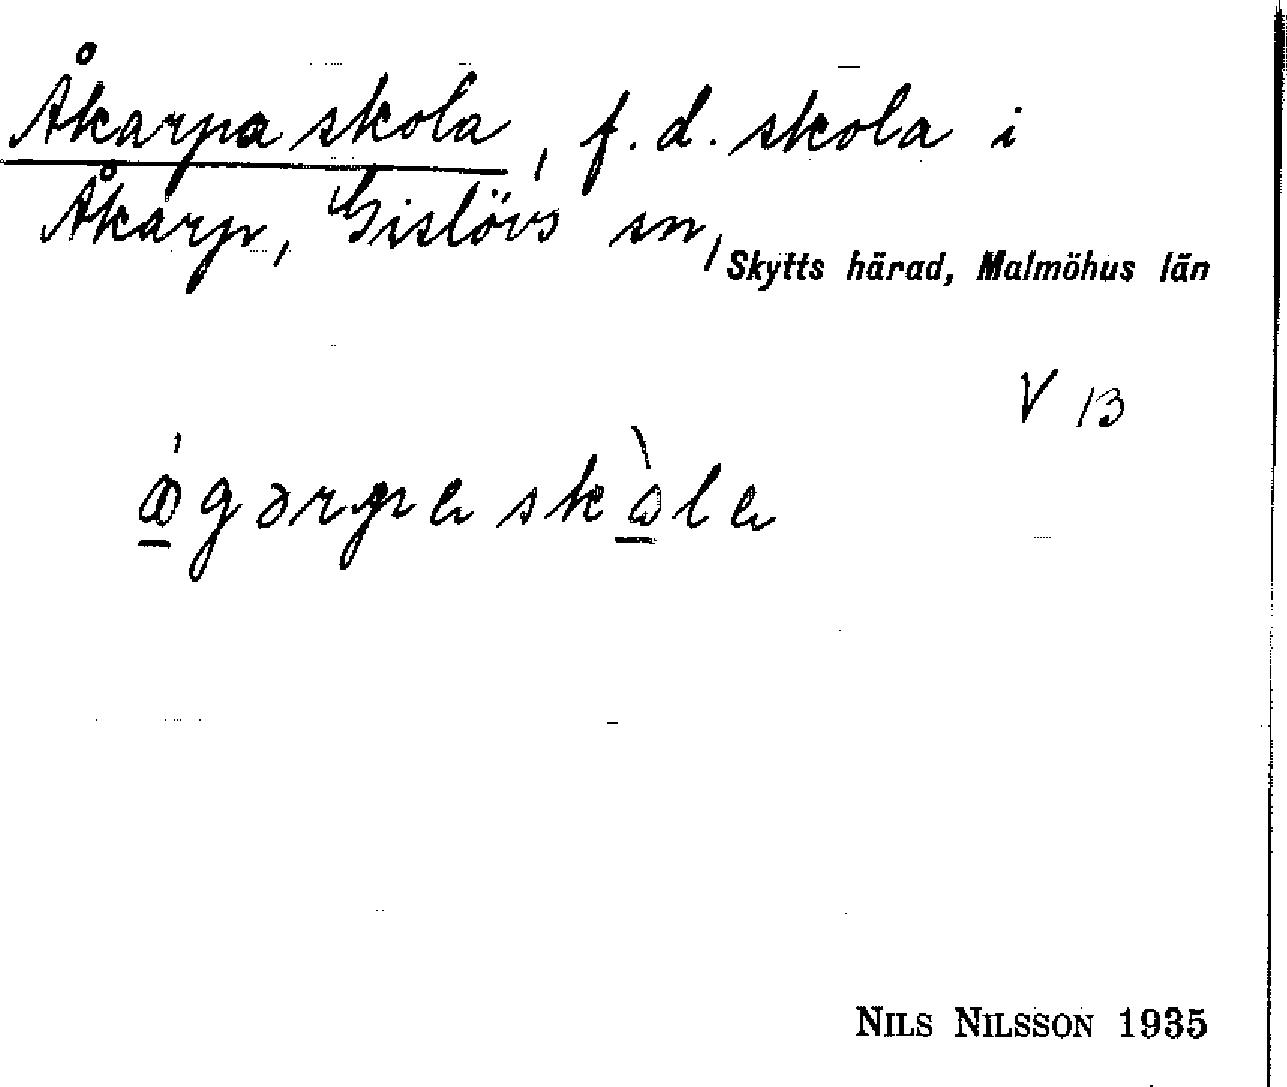 Åkarpa skola, f. d. skola i
Åkarp, Gislövs sn, Skytts härad, Malmöhus län
V 13
NILS NILSSON 1935